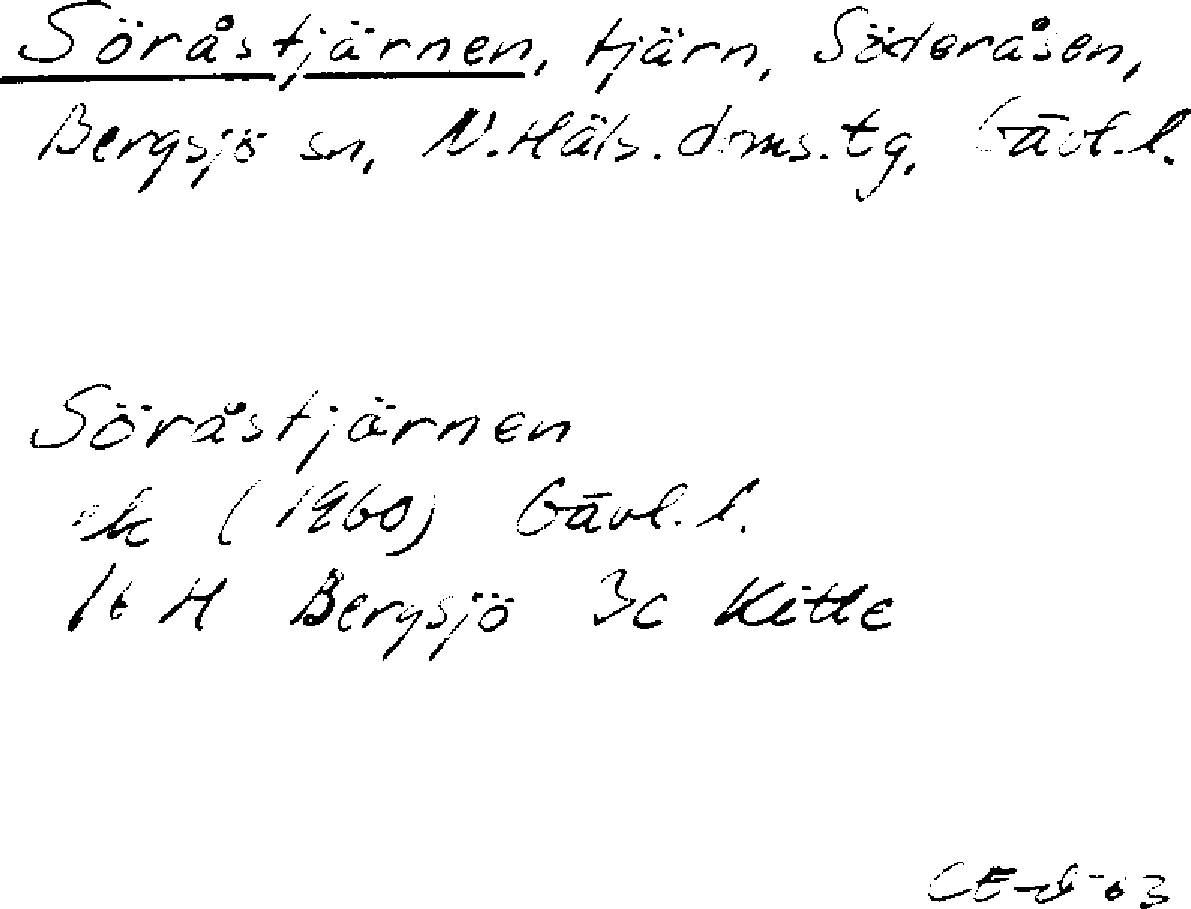 Söråstjärnen, tjärn, Söderåsen,
Bergsjö sn, N.Häls.doms.tg, Gävl.l.
Söråstjärnen
ek (1960) Gävl.l.
16 H Bergsjö 3c Kitte